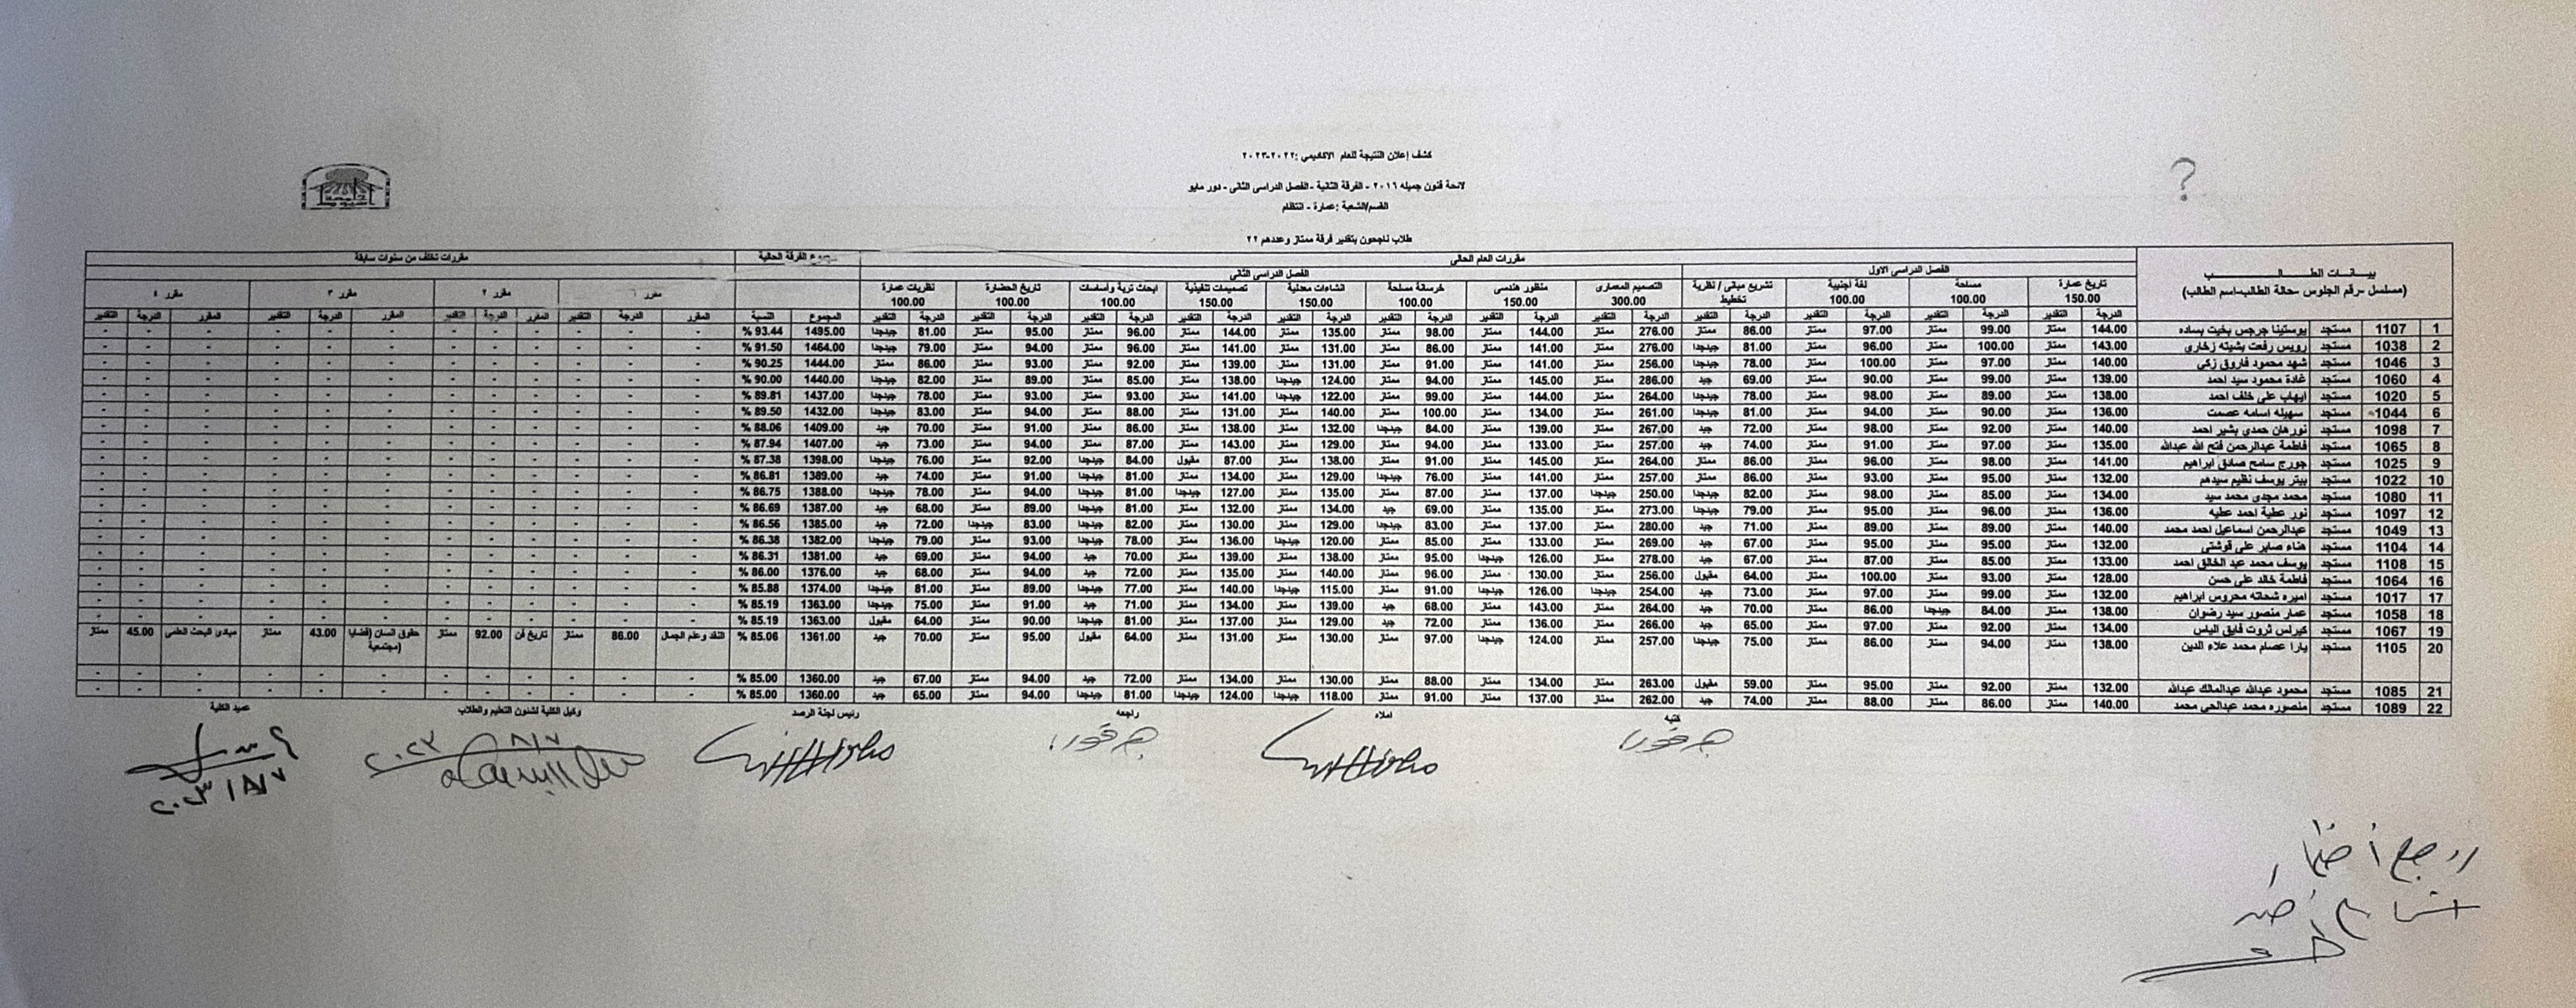 كشف إعلان النتيجة للعام الاكاديمي :٢٠٢٢-٢٠٢٣
لائحة فنون جميله ٢٠١٦ - الفرقة الثانية - الفصل الدراسى الثانى - دور مايو
القسم/الشعبة :عمارة - انتظام
طلاب ناجحون بتقدير فرقة ممتاز وعددهم ٢٢
?
بيـــانـات الطـــالـــب
(مسلسل -رقم الجلوس -حالة الطالب-اسم الطالب)
مقررات العام الحالى الفرقة الحالية مقررات تخلف من سنوات سابقة
الفصل الدراسى الاول الفصل الدراسى الثانى
تاريخ عمارة مساحة لغة أجنبية تشريع مبانى / نظرية تخطيط التصميم المعمارى منظور هندسى خرسانة مسلحة انشاءات معدنية تصميمات تنفيذية ابحاث تربة وأساسات تاريخ الحضارة نظريات عمارة مقرر ١ مقرر ٢ مقرر ٣ مقرر ٤
150.00 100.00 100.00 300.00 150.00 100.00 150.00 150.00 100.00 100.00 100.00
الدرجة التقدير الدرجة التقدير الدرجة التقدير الدرجة التقدير الدرجة التقدير الدرجة التقدير الدرجة التقدير الدرجة التقدير الدرجة التقدير الدرجة التقدير الدرجة التقدير الدرجة التقدير المجموع النسبة المقرر الدرجة التقدير المقرر الدرجة التقدير المقرر الدرجة التقدير المقرر الدرجة التقدير
1 1107 مستجد يوستينا جرجس بخيت بساده 144.00 ممتاز 99.00 ممتاز 97.00 ممتاز 86.00 ممتاز 276.00 ممتاز 144.00 ممتاز 98.00 ممتاز 135.00 ممتاز 144.00 ممتاز 96.00 ممتاز 95.00 ممتاز 81.00 جيدجدا 1495.00 93.44 % - - - - - - - - - - - -
2 1038 مستجد رويس رفعت بشيته زخارى 143.00 ممتاز 100.00 ممتاز 96.00 ممتاز 81.00 جيدجدا 276.00 ممتاز 141.00 ممتاز 86.00 ممتاز 131.00 ممتاز 141.00 ممتاز 96.00 ممتاز 94.00 ممتاز 79.00 جيدجدا 1464.00 91.50 % - - - - - - - - - - - -
3 1046 مستجد شهد محمود فاروق زكى 140.00 ممتاز 97.00 ممتاز 100.00 ممتاز 78.00 جيدجدا 256.00 ممتاز 141.00 ممتاز 91.00 ممتاز 131.00 ممتاز 139.00 ممتاز 92.00 ممتاز 93.00 ممتاز 86.00 ممتاز 1444.00 90.25 % - - - - - - - - - - - -
4 1060 مستجد غادة محمود سيد احمد 139.00 ممتاز 99.00 ممتاز 90.00 ممتاز 69.00 جيد 286.00 ممتاز 145.00 ممتاز 94.00 ممتاز 124.00 جيدجدا 138.00 ممتاز 85.00 ممتاز 89.00 ممتاز 82.00 جيدجدا 1440.00 90.00 % - - - - - - - - - - - -
5 1020 مستجد ايهاب على خلف احمد 138.00 ممتاز 89.00 ممتاز 98.00 ممتاز 78.00 جيدجدا 264.00 ممتاز 144.00 ممتاز 99.00 ممتاز 122.00 جيدجدا 141.00 ممتاز 93.00 ممتاز 93.00 ممتاز 78.00 جيدجدا 1437.00 89.81 % - - - - - - - - - - - -
6 1044 مستجد سهيله اسامه عصمت 136.00 ممتاز 90.00 ممتاز 94.00 ممتاز 81.00 جيدجدا 261.00 ممتاز 134.00 ممتاز 100.00 ممتاز 140.00 ممتاز 131.00 ممتاز 88.00 ممتاز 94.00 ممتاز 83.00 جيدجدا 1432.00 89.50 % - - - - - - - - - - - -
7 1098 مستجد نورهان حمدى بشير احمد 140.00 ممتاز 92.00 ممتاز 98.00 ممتاز 72.00 جيد 267.00 ممتاز 139.00 ممتاز 84.00 جيدجدا 132.00 ممتاز 138.00 ممتاز 86.00 ممتاز 91.00 ممتاز 70.00 جيد 1409.00 88.06 % - - - - - - - - - - - -
8 1065 مستجد فاطمة عبدالرحمن فتح الله عبدالله 135.00 ممتاز 97.00 ممتاز 91.00 ممتاز 74.00 جيد 257.00 ممتاز 133.00 ممتاز 94.00 ممتاز 129.00 ممتاز 143.00 ممتاز 87.00 ممتاز 94.00 ممتاز 73.00 جيد 1407.00 87.94 % - - - - - - - - - - - -
9 1025 مستجد جورج سامح صادق ابراهيم 141.00 ممتاز 98.00 ممتاز 96.00 ممتاز 86.00 ممتاز 264.00 ممتاز 145.00 ممتاز 91.00 ممتاز 138.00 ممتاز 87.00 مقبول 84.00 جيدجدا 92.00 ممتاز 76.00 جيدجدا 1398.00 87.38 % - - - - - - - - - - - -
10 1022 مستجد بيتر يوسف نظيم سيدهم 132.00 ممتاز 95.00 ممتاز 93.00 ممتاز 86.00 ممتاز 257.00 ممتاز 141.00 ممتاز 76.00 جيدجدا 129.00 ممتاز 134.00 ممتاز 81.00 جيدجدا 91.00 ممتاز 74.00 جيد 1389.00 86.81 % - - - - - - - - - - - -
11 1080 مستجد محمد مجدى محمد سيد 134.00 ممتاز 85.00 ممتاز 98.00 ممتاز 82.00 جيدجدا 250.00 جيدجدا 137.00 ممتاز 87.00 ممتاز 135.00 ممتاز 127.00 جيدجدا 81.00 جيدجدا 94.00 ممتاز 78.00 جيدجدا 1388.00 86.75 % - - - - - - - - - - - -
12 1097 مستجد نور عطية احمد عطيه 136.00 ممتاز 96.00 ممتاز 95.00 ممتاز 79.00 جيدجدا 273.00 ممتاز 135.00 ممتاز 69.00 جيد 134.00 ممتاز 132.00 ممتاز 81.00 جيدجدا 89.00 ممتاز 68.00 جيد 1387.00 86.69 % - - - - - - - - - - - -
13 1049 مستجد عبدالرحمن اسماعيل احمد محمد 140.00 ممتاز 89.00 ممتاز 89.00 ممتاز 71.00 جيد 280.00 ممتاز 137.00 ممتاز 83.00 جيدجدا 129.00 ممتاز 130.00 ممتاز 82.00 جيدجدا 83.00 جيدجدا 72.00 جيد 1385.00 86.56 % - - - - - - - - - - - -
14 1104 مستجد هناء صابر على قوشتى 132.00 ممتاز 95.00 ممتاز 95.00 ممتاز 67.00 جيد 269.00 ممتاز 133.00 ممتاز 85.00 ممتاز 120.00 جيدجدا 136.00 ممتاز 78.00 جيدجدا 93.00 ممتاز 79.00 جيدجدا 1382.00 86.38 % - - - - - - - - - - - -
15 1108 مستجد يوسف محمد عبد الخالق احمد 133.00 ممتاز 85.00 ممتاز 87.00 ممتاز 67.00 جيد 278.00 ممتاز 126.00 جيدجدا 95.00 ممتاز 138.00 ممتاز 139.00 ممتاز 70.00 جيد 94.00 ممتاز 69.00 جيد 1381.00 86.31 % - - - - - - - - - - - -
16 1064 مستجد فاطمة خالد على حسن 128.00 ممتاز 93.00 ممتاز 100.00 ممتاز 64.00 مقبول 256.00 ممتاز 130.00 ممتاز 96.00 ممتاز 140.00 ممتاز 135.00 ممتاز 72.00 جيد 94.00 ممتاز 68.00 جيد 1376.00 86.00 % - - - - - - - - - - - -
17 1017 مستجد اميره شحاته محروس ابراهيم 132.00 ممتاز 99.00 ممتاز 97.00 ممتاز 73.00 جيد 254.00 جيدجدا 126.00 جيدجدا 91.00 ممتاز 115.00 جيدجدا 140.00 ممتاز 77.00 جيدجدا 89.00 ممتاز 81.00 جيدجدا 1374.00 85.88 % - - - - - - - - - - - -
18 1058 مستجد عمار منصور سيد رضوان 138.00 ممتاز 84.00 جيدجدا 86.00 ممتاز 70.00 جيد 264.00 ممتاز 143.00 ممتاز 68.00 جيد 139.00 ممتاز 134.00 ممتاز 71.00 جيد 91.00 ممتاز 75.00 جيدجدا 1363.00 85.19 % - - - - - - - - - - - -
19 1067 مستجد كيرلس ثروت فايق الياس 134.00 ممتاز 92.00 ممتاز 97.00 ممتاز 65.00 جيد 266.00 ممتاز 136.00 ممتاز 72.00 جيد 129.00 ممتاز 137.00 ممتاز 81.00 جيدجدا 90.00 ممتاز 64.00 مقبول 1363.00 85.19 % - - - - - - - - - - - -
20 1105 مستجد يارا عصام محمد علاء الدين 138.00 ممتاز 94.00 ممتاز 86.00 ممتاز 75.00 جيدجدا 257.00 ممتاز 124.00 جيدجدا 97.00 ممتاز 130.00 ممتاز 131.00 ممتاز 64.00 مقبول 95.00 ممتاز 70.00 جيد 1361.00 85.06 % النقد وعلم الجمال 86.00 ممتاز تاريخ فن 92.00 ممتاز حقوق انسان (قضايا مجتمعية) 43.00 ممتاز مبادئ البحث العلمى 45.00 ممتاز
21 1085 مستجد محمود عبدالله عبدالمالك عبدالله 132.00 ممتاز 92.00 ممتاز 95.00 ممتاز 59.00 مقبول 263.00 ممتاز 134.00 ممتاز 88.00 ممتاز 130.00 ممتاز 134.00 ممتاز 72.00 جيد 94.00 ممتاز 67.00 جيد 1360.00 85.00 % - - - - - - - - - - - -
22 1089 مستجد منصوره محمد عبدالحى محمد 140.00 ممتاز 86.00 ممتاز 88.00 ممتاز 74.00 جيد 262.00 ممتاز 137.00 ممتاز 91.00 ممتاز 118.00 جيدجدا 124.00 جيدجدا 81.00 جيدجدا 94.00 ممتاز 65.00 جيد 1360.00 85.00 % - - - - - - - - - - - -
كتبه املاه راجعه رئيس لجنة الرصد وكيل الكلية لشئون التعليم والطلاب عميد الكلية
٢٠٢٣/٨/٧
٢٠٢٣/٨/٧